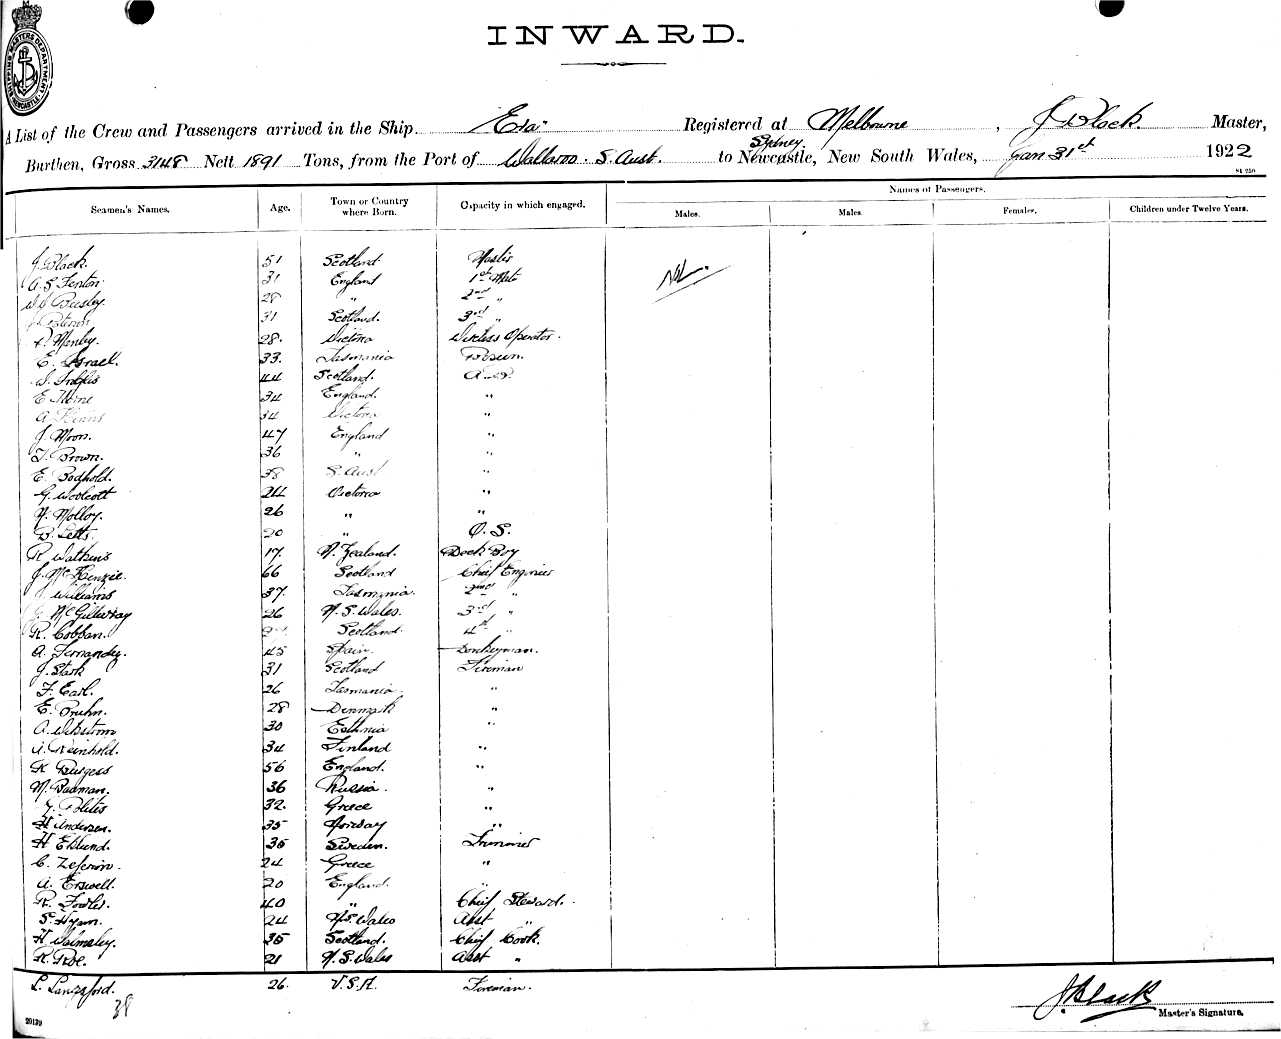 INWARD.
SHIPPING MASTERS DEPARTMENT NEWCASTLE
A List of the Crew and Passengers arrived in the Ship Era Registered at Melbourne, J Black. Master,
Burthen, Gross 3148 Nett 1891 Tons, from the Port of Wallaroo. S. Aust. to Newcastle, Sydney. New South Wales, Jan 31st 1922
St 250
Seamen's Names. Age. Town or Country where Born. Capacity in which engaged. Names of Passengers.
Males. Males. Females. Children under Twelve Years.
J. Black. 51 Scotland Master Nil.
A. S. Fenton. 31 England 1st Mate
Beesley 28 " 2nd "
31 Scotland. 3rd "
Manley. 28. Victoria Wireless Operator.
E. Israel. 33. Tasmania Bosun.
44 Scotland. A.B.
E. 34 England. "
A. 34 Victoria "
J. Moon. 47 England "
T. Brown. 36 " "
E. Bodhold. 38 S. Aust "
G. Woolcott 24 Victoria "
Molloy. 26 " "
B. Letts. 20 " O. S.
R Watkins 17. N. Zealand. Deck Boy
J. McKenzie. 66 Scotland Chief Engineer
Williams 37. Tasmania. 2nd "
McGillivray 26 N. S. Wales. 3rd "
R. Cobban. Scotland. 4th "
A. Fernandez. 45 Spain. Donkeyman.
J. Stark 31 Scotland Fireman
F. Earl. 26 Tasmania. "
E. Bruhn. 28 Denmark "
A. 30 Esthnia "
A. Reinhold. 34 Finland "
Burgess 56 England. "
M. Badman. 36 Russia. "
Politis 32. Greece "
H Andersen. 35 Norway "
H Eklund. 35 Sweden. Trimmer
C. 24 Greece "
A. Erswell. 20 England. "
R. Fowles. 40 " Chief Steward.
S. Hyam. 24 N.S. Wales Asst "
H Walmsley. 35 Scotland. Chief Cook.
R. Roe. 21 N. S. Wales Asst "
L. Langsford. 26. U.S.A. Fireman.
38
J. Black
Master's Signature.
20139